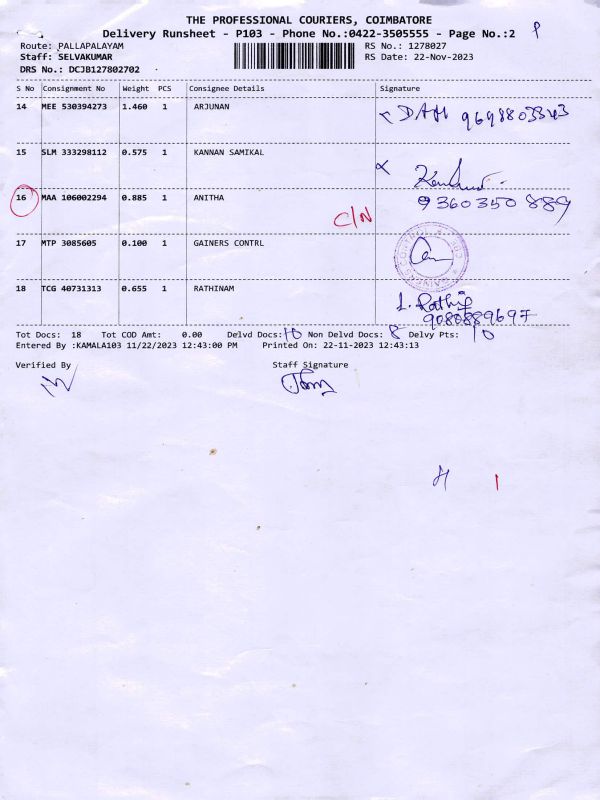 THE PROFESSIONAL COURIERS, COIMBATORE
Delivery Runsheet - P103 - Phone No.:0422-3505555 - Page No.:2
Route: PALLAPALAYAM RS No.: 1278027
Staff: SELVAKUMAR RS Date: 22-Nov-2023
DRS No.: DCJB127802702
S No Consignment No Weight PCS Consignee Details Signature
14 MEE 530394273 1.460 1 ARJUNAN
15 SLM 333298112 0.575 1 KANNAN SAMIKAL
16 MAA 106002294 0.885 1 ANITHA C/N 9360350889
17 MTP 3085605 0.100 1 GAINERS CONTRL
18 TCG 40731313 0.655 1 RATHINAM
9080889697
Tot Docs: 18 Tot COD Amt: 0.00 Delvd Docs: 10 Non Delvd Docs: 8 Delvy Pts: 10
Entered By :KAMALA103 11/22/2023 12:43:00 PM Printed On: 22-11-2023 12:43:13
Verified By Staff Signature